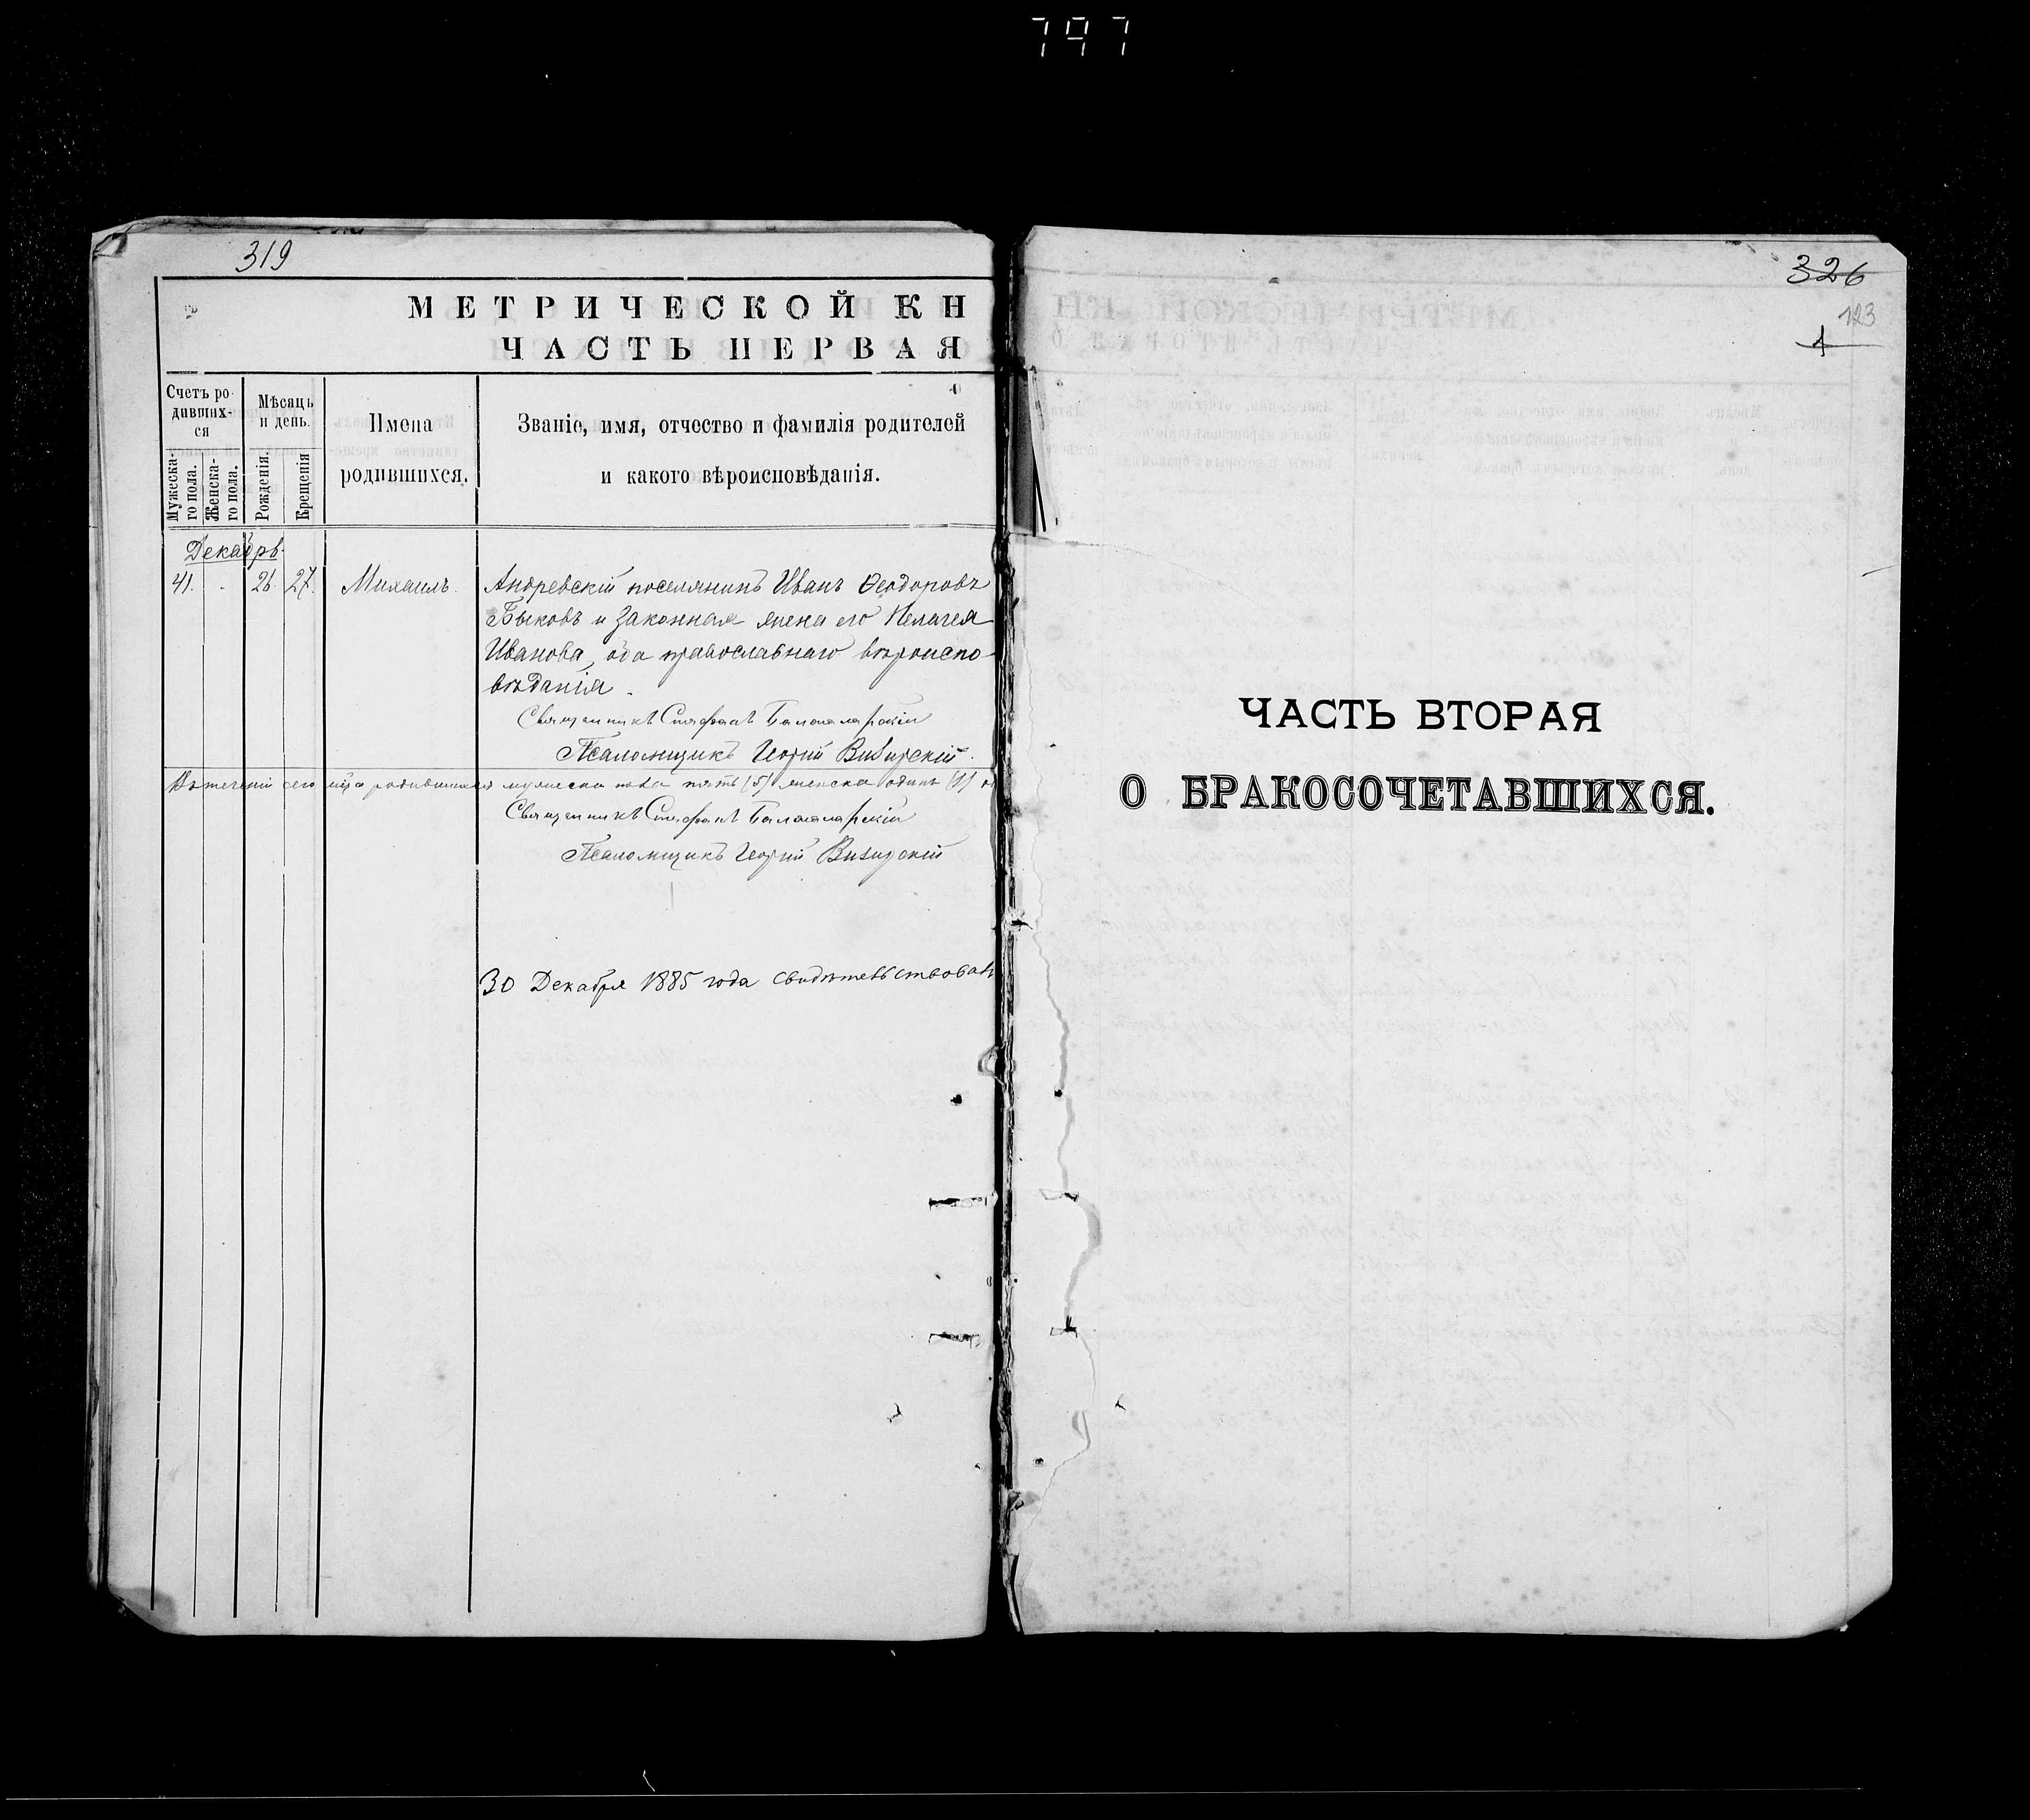 797
319
МЕТРИЧЕСКОЙ КН
ЧАСТЬ ПЕРВАЯ
Счетъ ро-
дивших-
ся
Мужеска-
го пола.
Женска-
го пола.
Мѣсяцъ
и день.
Рожденія.
Крещенія
Имена
родившихся.
Званіе, имя, отчество и фамилія родителей
и какого вѣроисповѣданія.
Декабрь
41. - 26. 27. Михаилъ. Андревскій поселянинъ Иванъ Ѳеодоровъ
Быковъ и законная жена его Пелагея
Иванова, оба православнаго вѣроиспо-
вѣданія.
Священникъ Стефанъ
Псаломщикъ Георгій
Въ теченіи сего мца родившихся мужеска пола пять (5) женска одинъ (1)
Священникъ Стефанъ
Псаломщикъ Георгій
30 Декабря 1885 года свидѣтельствовал
326
123
1
ЧАСТЬ ВТОРАЯ
О БРАКОСОЧЕТАВШИХСЯ.